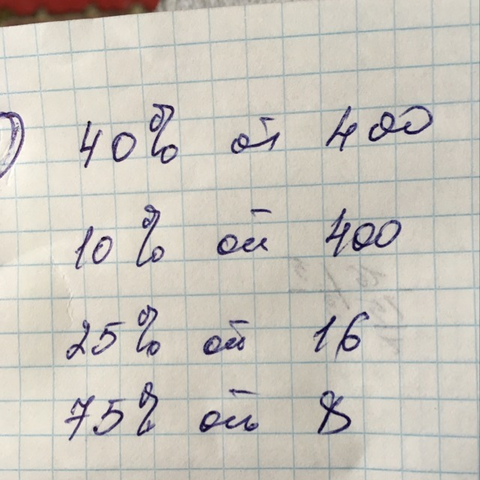 40% от 400
10% от 400
25% от 16
75% от 8